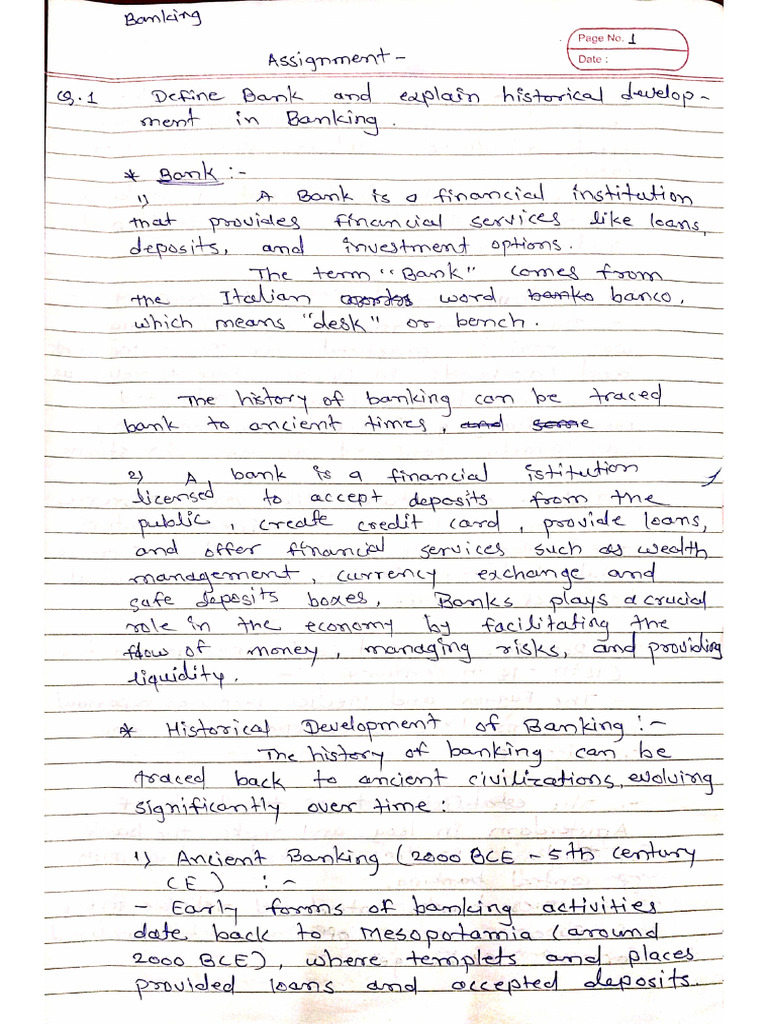 Banking
Page No. 1
Assignment -
Date :
Q.1 Define Bank and explain historical develop-
ment in Banking.
* Bank :-
1) A Bank is a financial institution
that provides financial services like loans,
deposits, and investment options.
The term "Bank" comes from
the Italian word banko banco,
which means "desk" or bench.
The history of banking can be traced
bank to ancient times, and some
2) A bank is a financial istitution
licensed to accept deposits from the
public, create credit card, provide loans,
and offer financial services such as wealth
management, currency exchange and
safe deposits boxes, Banks plays a crucial
role in the economy by facilitating the
flow of money, managing risks, and providing
liquidity.
* Historical Development of Banking :-
The history of banking can be
traced back to ancient civilizations, evolving
significantly over time :
1) Ancient Banking (2000 BCE - 5th century
CE) :-
- Early forms of banking activities
date back to Mesopotamia (around
2000 BCE), where templets and places
provided loans and accepted deposits.